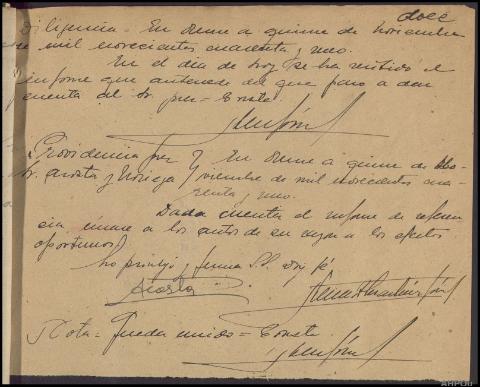 doce
Diligencia - En Orense a quince de Noviembre
de mil novecientos cuarenta y uno.
En el día de hoy se ha recibido el
informe que antecede del que paso a dar
cuenta al Sr. Juez = Consta.
Providencia Juez En Orense a quince de No-
Sr. Acosta y Noriega viembre de mil novecientos cua-
renta y uno.
Dada cuenta el informe de referen
cia únase a los autos de su razón a los efectos
oportunos.
Lo proveyó y firma S.S. doy fé
Acosta
Nota = Queda unido = Consta
AHPOu